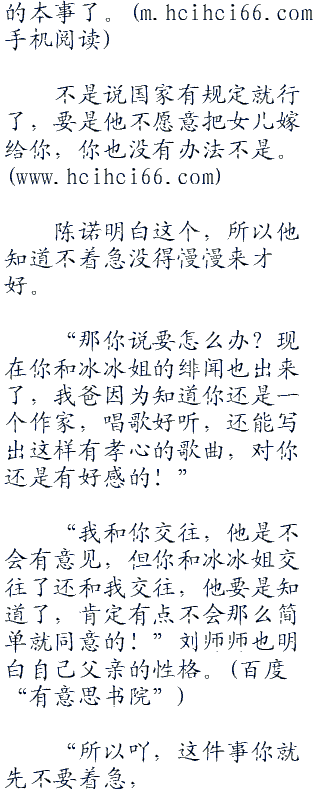 的本事了。(m.hcihci66.com
手机阅读)
不是说国家有规定就行
了，要是他不愿意把女儿嫁
给你，你也没有办法不是。
(www.hcihci66.com)
陈诺明白这个，所以他
知道不着急没得慢慢来才
好。
“那你说要怎么办？现
在你和冰冰姐的绯闻也出来
了，我爸因为知道你还是一
个作家，唱歌好听，还能写
出这样有孝心的歌曲，对你
还是有好感的！”
“我和你交往，他是不
会有意见，但你和冰冰姐交
往了还和我交往，他要是知
道了，肯定有点不会那么简
单就同意的！”刘师师也明
白自己父亲的性格。(百度
“有意思书院”)
“所以吖，这件事你就
先不要着急，